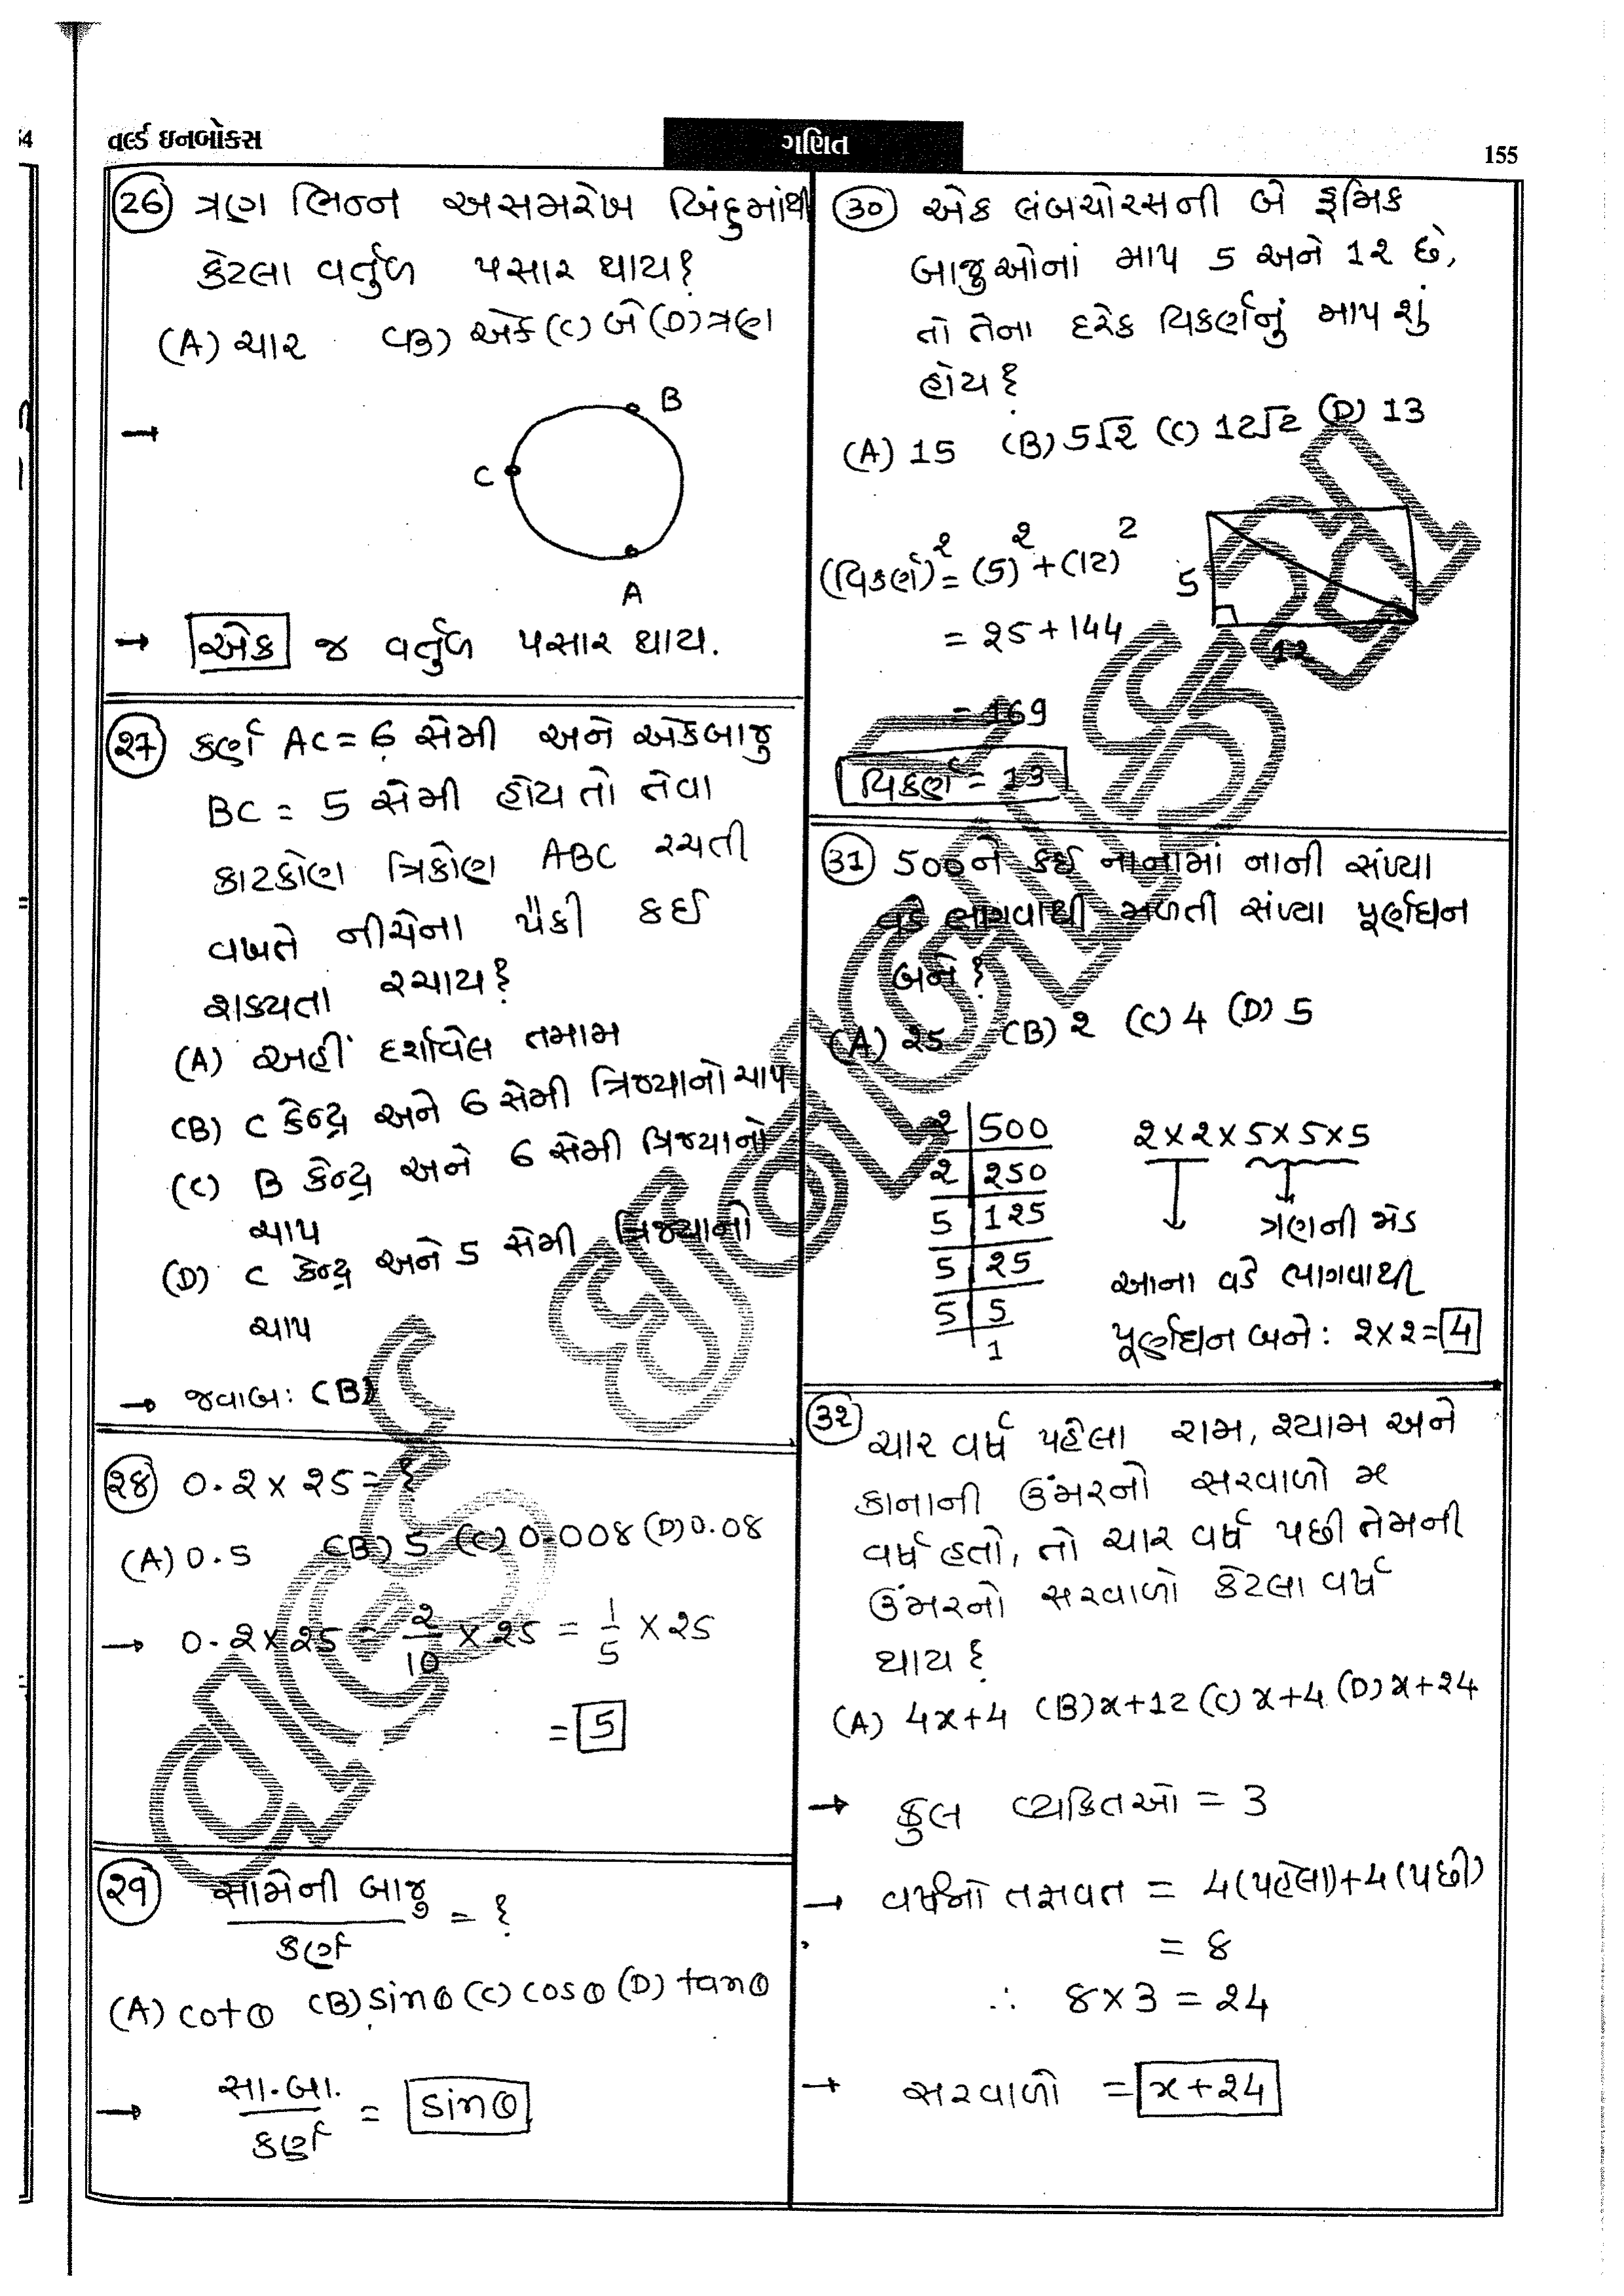 વર્લ્ડ ઇનબોક્સ
ગણિત
155
54
26 ત્રણ ભિન્ન અસમરેખ બિંદુમાંથી
કેટલા વર્તુળ પસાર થાય?
(A) ચાર (B) એક (C) બે (D) ત્રણ
B
C
A
→ એક જ વર્તુળ પસાર થાય.
૨7 કર્ણ AC = 6 સેમી અને એકબાજુ
BC = 5 સેમી હોય તો તેવા
કાટકોણ ત્રિકોણ ABC રચતી
વખતે નીચેના પૈકી કઈ
શક્યતા રચાય?
(A) અહીં દર્શાવેલ તમામ
(B) C કેન્દ્ર અને 6 સેમી ત્રિજ્યાનો ચાપ
(C) B કેન્દ્ર અને 6 સેમી ત્રિજ્યાનો
ચાપ
(D) C કેન્દ્ર અને 5 સેમી ત્રિજ્યાનો
ચાપ
→ જવાબ: (B)
૨8 0.૨ × ૨5 = ?
(A) 0.5 (B) 5 (C) 0.008 (D) 0.08
→ 0.૨ × ૨5 = ૨/10 × ૨5 = 1/5 × ૨5
= 5
૨9 સામેની બાજુ / કર્ણ = ?
(A) cotθ (B) sinθ (C) cosθ (D) tanθ
→ સા.બા. / કર્ણ = sinθ
30 એક લંબચોરસની બે ક્રમિક
બાજુઓનાં માપ 5 અને 1૨ છે,
તો તેના દરેક વિકર્ણનું માપ શું
હોય?
(A) 15 (B) 5√૨ (C) 12√2 (D) 13
(વિકર્ણ)^૨ = (5)^૨ + (12)^2
5
12
= ૨5 + 144
= 169
વિકર્ણ = 13
31 500ને કઈ નાનામાં નાની સંખ્યા
વડે ભાગવાથી મળતી સંખ્યા પૂર્ણઘન
બને?
(A) ૨5 (B) ૨ (C) 4 (D) 5
૨ | 500
૨ | ૨50
5 | 1૨5
5 | ૨5
5 | 5
1
૨ × ૨ × 5 × 5 × 5
ત્રણની જોડ
આના વડે ભાગવાથી
પૂર્ણઘન બને: ૨×૨ = 4
3૨ ચાર વર્ષ પહેલા રામ, શ્યામ અને
કાનાની ઉંમરનો સરવાળો x
વર્ષ હતો, તો ચાર વર્ષ પછી તેમની
ઉંમરનો સરવાળો કેટલા વર્ષ
થાય?
(A) 4x+4 (B) x+12 (C) x+4 (D) x+૨4
→ કુલ વ્યક્તિઓ = 3
→ વર્ષનો તફાવત = 4(પહેલા)+4(પછી)
= 8
∴ 8×3 = ૨4
→ સરવાળો = x+૨4